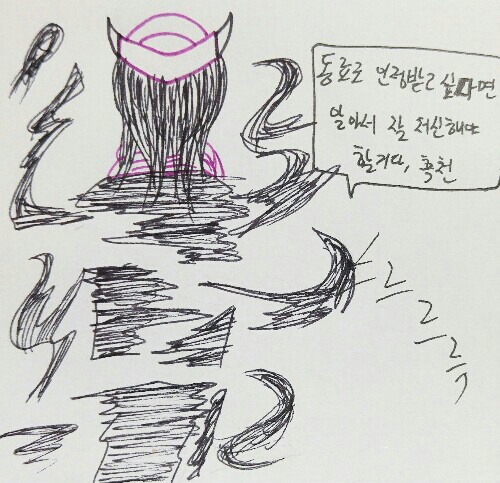 동료로 인정받고 싶다면
알아서 잘 처신해야
할거다, 흑천